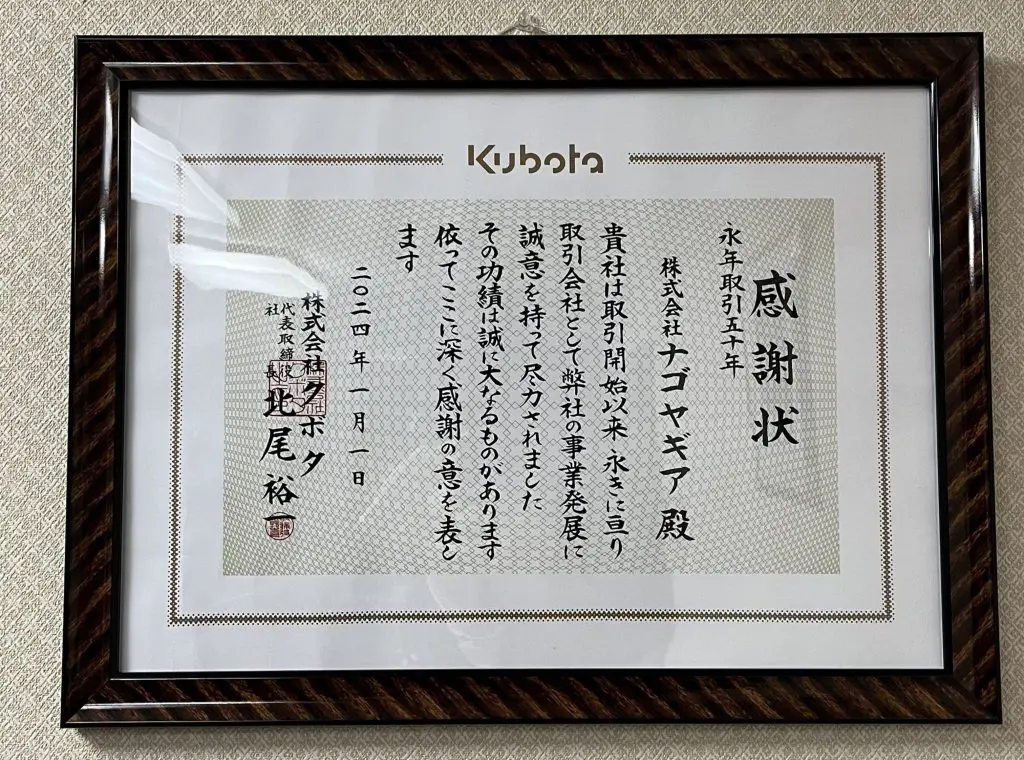 Kubota
感謝状
永年取引五十年
株式会社ナゴヤギア殿
貴社は取引開始以来永きに亘り
取引会社として弊社の事業発展に
誠意を持って尽力されました
その功績は誠に大なるものがあります
依ってここに深く感謝の意を表し
ます
二〇二四年一月一日
株式会社クボタ
代表取締役
社長
北尾裕一